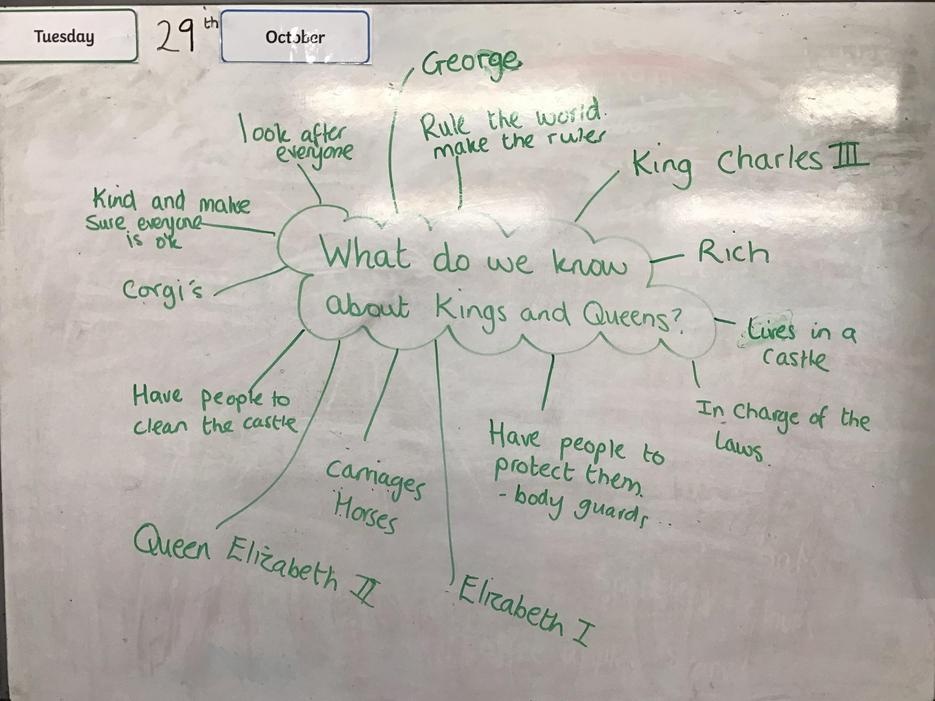 Tuesday
29th
October
George
look after
everyone
Rule the world.
make the ruler
King Charles III
Kind and make
Sure everyone
is ok
What do we know
about Kings and Queens?
Rich
Corgi's
Lives in a
Castle
Have people to
clean the castle
In Charge of the
laws.
Carriages
Horses
Have people to
protect them.
- body guards..
Queen Elizabeth II
Elizabeth I